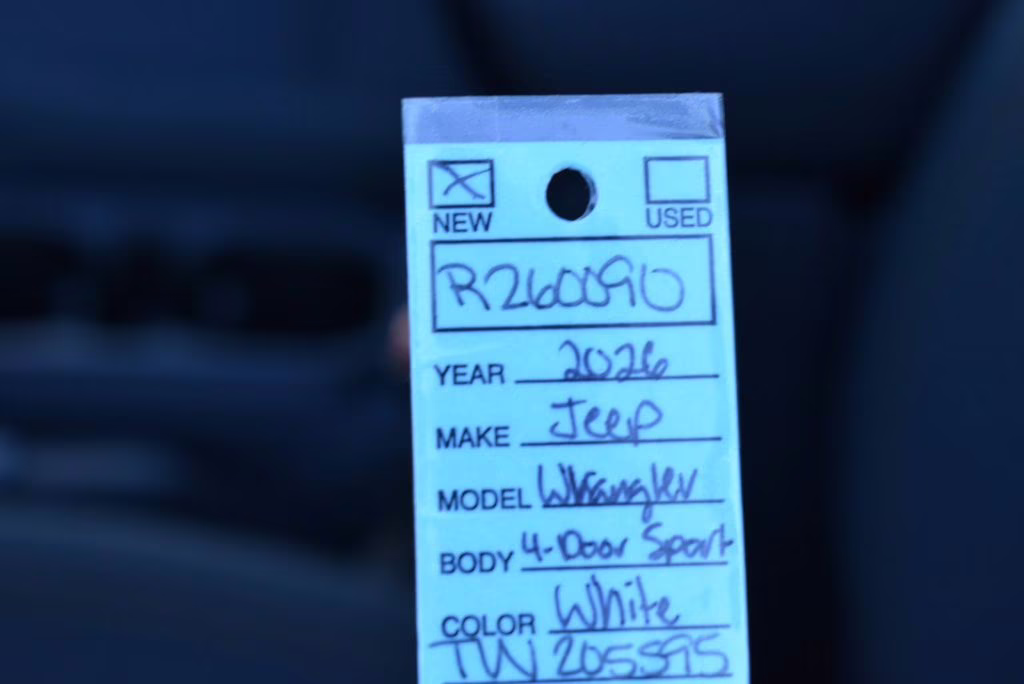 NEW USED
R260090
YEAR 2026
MAKE Jeep
MODEL Wrangler
BODY 4-Door Sport
COLOR White
TW 205595